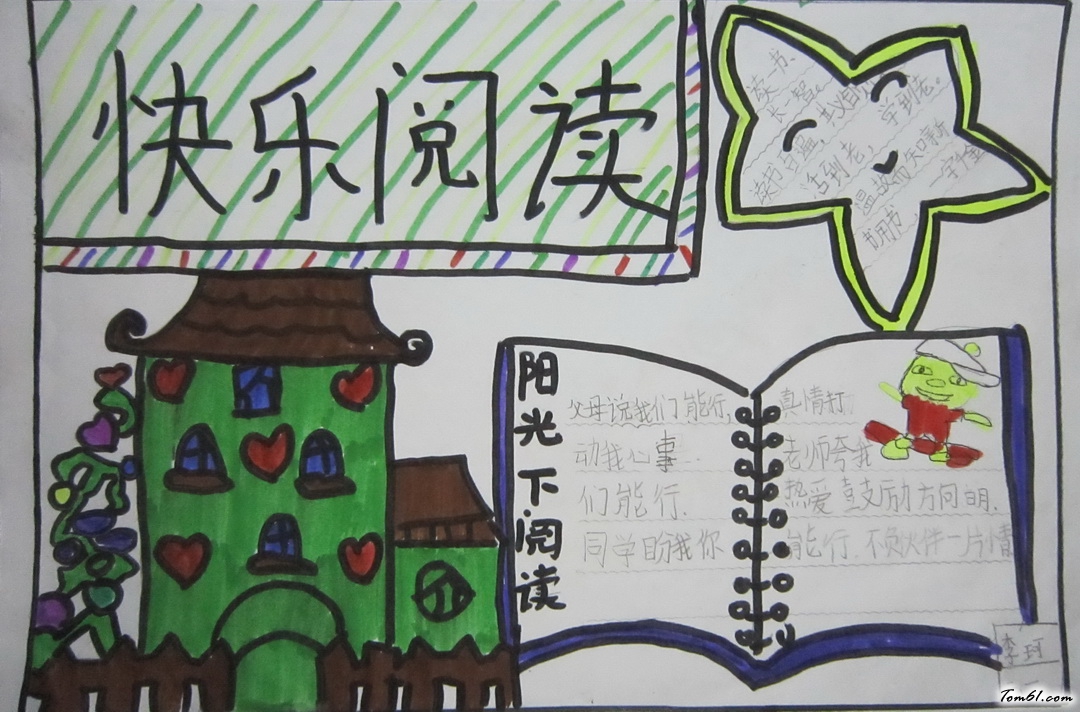 快乐阅读
读一书、
长一智。
读书日益，
活到老，
学到老。
温故而知新
一字
书用书
阳光下阅读
父母说我们能行，
真情打
动我心事.
老师夸我
们能行.
热爱鼓励方向明.
同学盼我你
能行.不负伙伴一片情
李珂
Tom61.com